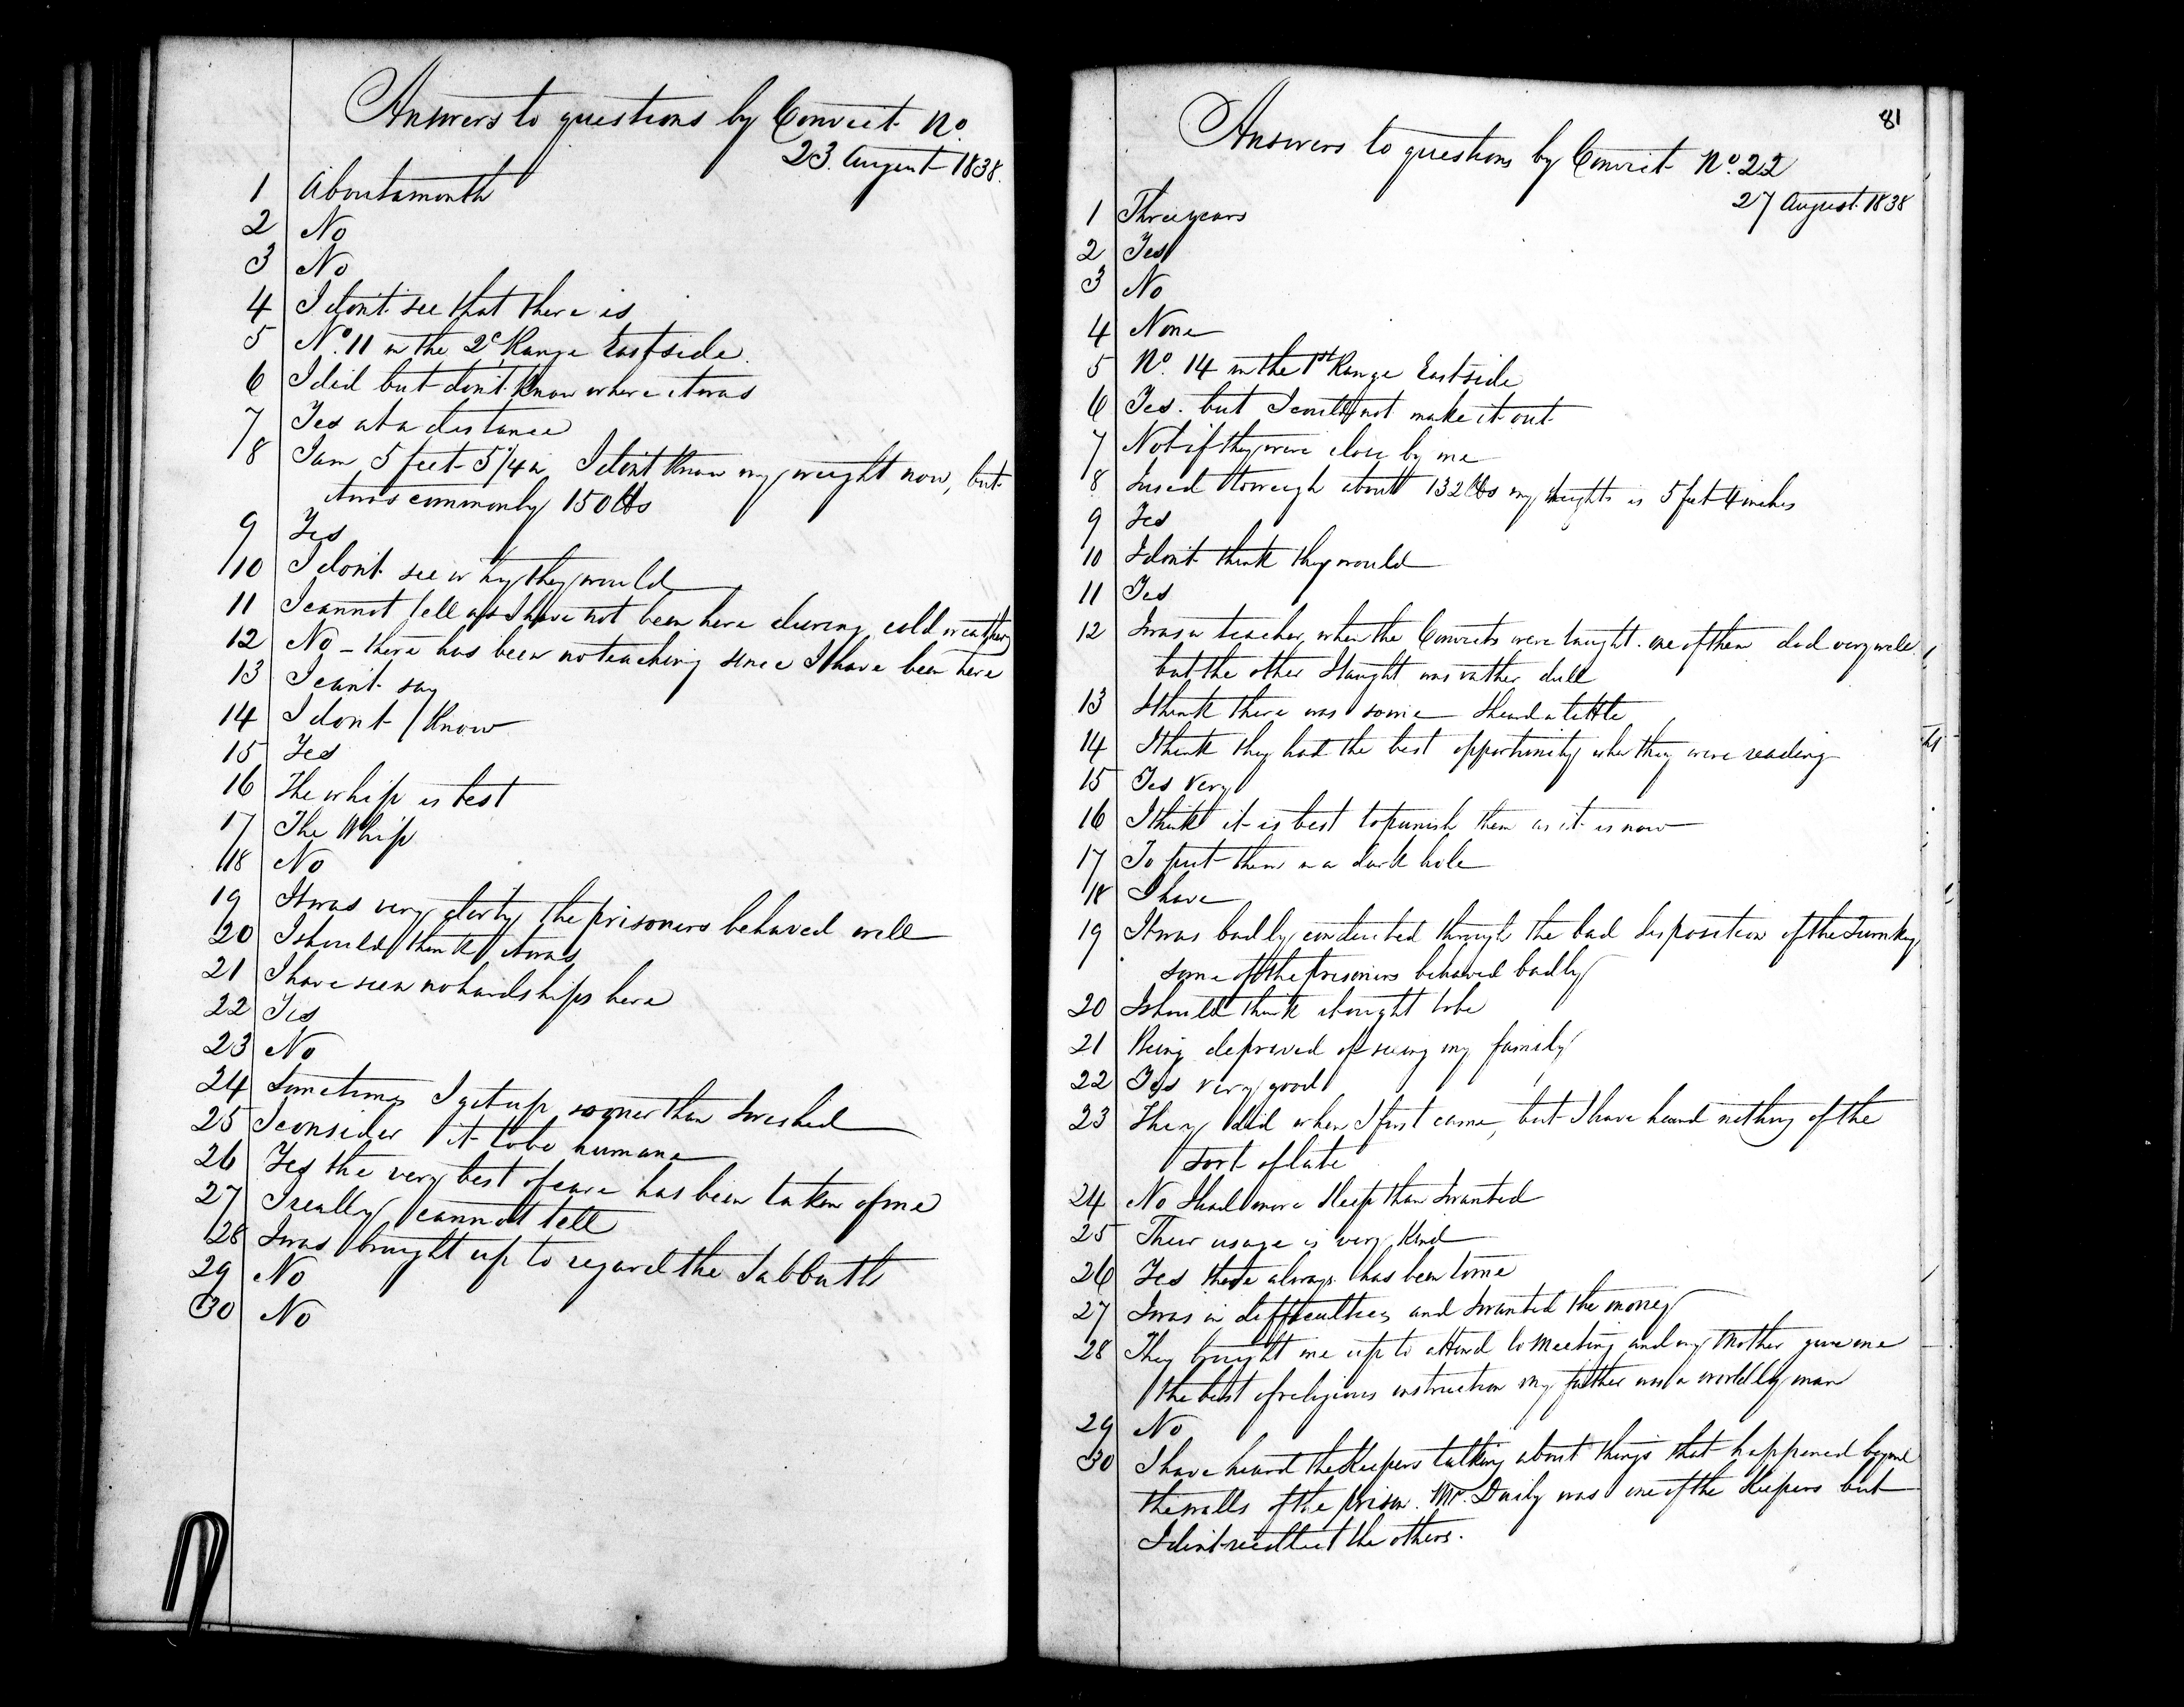 Answers to questions by Convict No.
23. August 1838.
1 About a month
2 No
3 No
4 I don't see that there is
5 No. 11 in the 2d Range East side.
6 I did but don't know where it was
7 Yes at a distance
8 I am 5 feet 5 1/4 in I don't know my weight now, but
it was commonly 150 lbs
9 Yes
10 I don't see why they would
11 I cannot tell as I have not been here during cold weather
12 No - there has been no teaching since I have been here
13 I can't say
14 I don't know
15 Yes
16 The whip is best
17 The Whip
18 No
19 It was very dirty the prisoners behaved well
20 I should think it was
21 I have seen no hardships here
22 Yes
23 No
24 Sometimes I get up sooner than I wished
25 I consider it to be humane
26 Yes the very best of care has been taken of me
27 I really cannot tell
28 I was brought up to regard the Sabbath
29 No
30 No
81
Answers to questions by Convict No. 22
27 August 1838
1 Three years
2 Yes
3 No
4 None
5 No. 14 in the 1st Range East side
6 Yes. but I could not make it out
7 Not if they were close by me
8 I used to weigh about 132 lbs my heights is 5 feet 4 inches
9 Yes
10 I don't think they would
11 Yes
12 I was a teacher, when the Convicts were taught. one of them did very well
but the other I taught was rather dull
13 I think there was some I heard a little
14 I think they had the best opportunity when they were reading
15 Yes very
16 I think it is best to punish them as it is now
17 To put them in a dark hole
18 I have
19 It was badly conducted through the bad disposition of the Turnkey
some of the prisoners behaved badly
20 I should think it ought to be
21 Being deprived of seeing my family
22 Yes very good
23 They did when I first came, but I have heard nothing of the
sort of late
24 No I had more sleep than I wanted
25 Their usage is very kind
26 Yes there always has been to me
27 I was in difficulties and I wanted the money
28 They brought me up to attend to Meeting and my Mother gave me
the best of religious instruction my father was a worldly man
29 No
30 I have heard the Keepers talking about things that happened beyond
the walls of the prison. Mr. Daily was one of the Keepers but
I don't recollect the others.